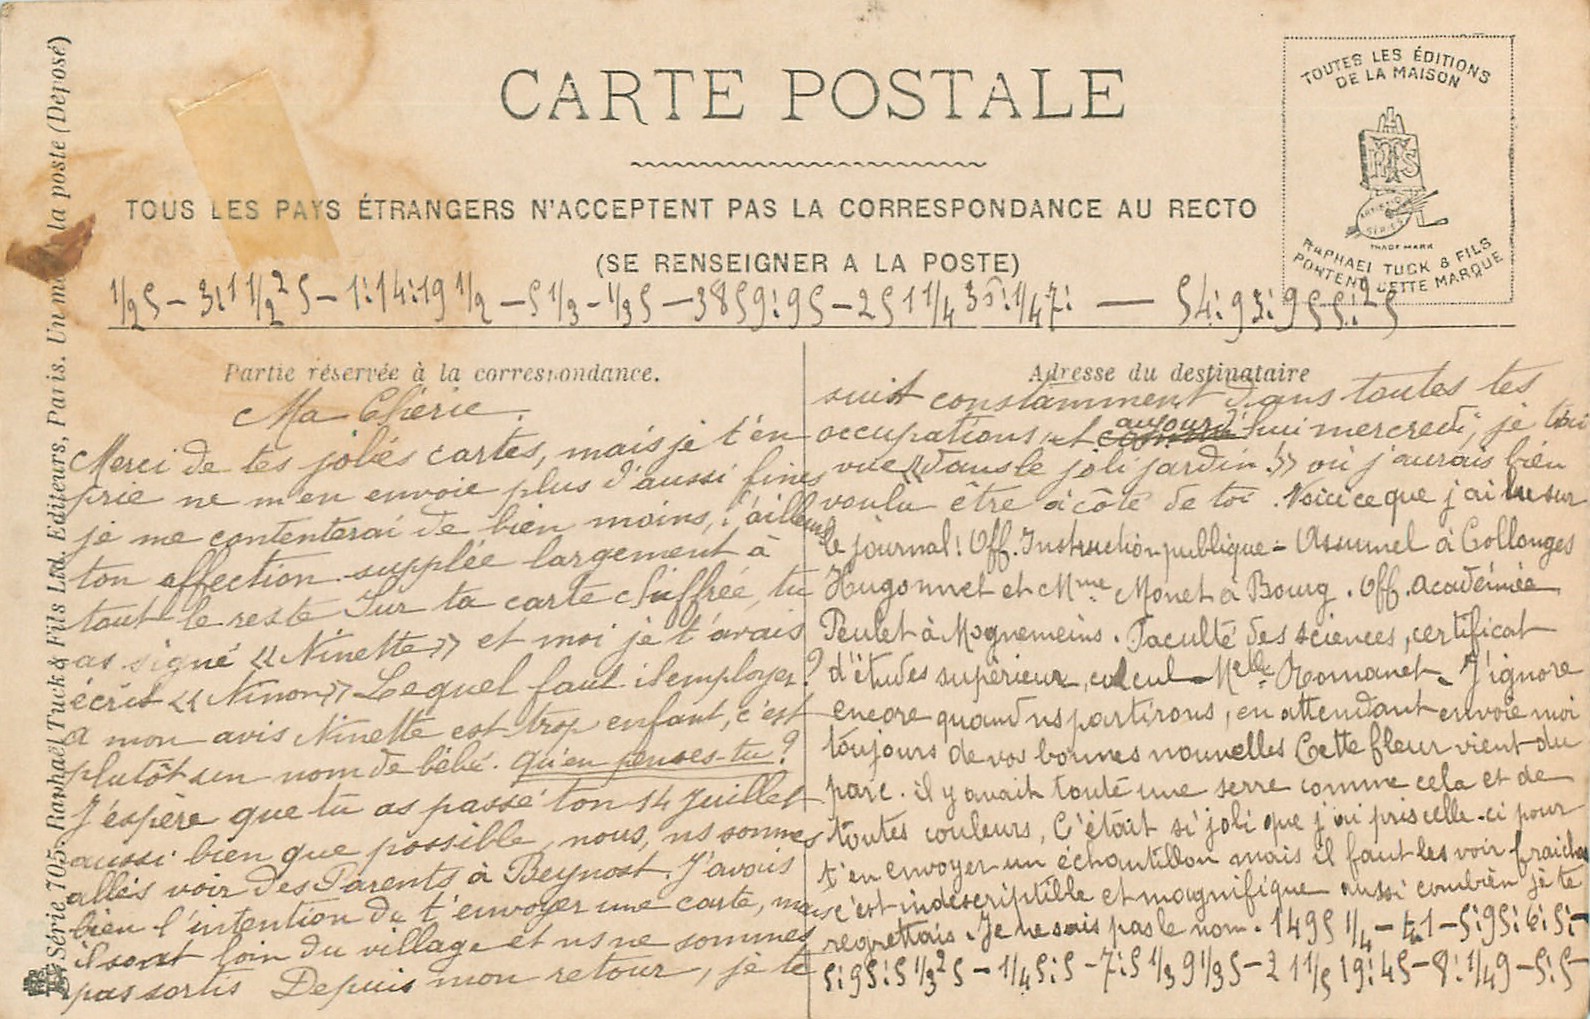 CARTE POSTALE
TOUTES LES ÉDITIONS
DE LA MAISON
RTS
ARTISTIQUE
SERIES
TRADE MARK
RAPHAEL TUCK & FILS
PORTENT CETTE MARQUE
TOUS LES PAYS ÉTRANGERS N'ACCEPTENT PAS LA CORRESPONDANCE AU RECTO
(SE RENSEIGNER A LA POSTE)
Série 705. Raphaël Tuck & Fils Ltd. Editeurs, Paris. Un la poste (Déposé)
Partie réservée à la correspondance.
Ma Chérie.
Merci de tes jolies cartes, mais je t'en
prie ne m'en envoie plus d'aussi fines
je me contenterai de bien moins, d'ailleurs
ton affection supplée largement à
tout le reste Sur ta carte chiffrée, tu
as signé « Ninette » et moi je t'avais
écrit « Ninon » Lequel faut il employer ?
A mon avis Ninette est trop enfant, c'est
plutôt un nom de bébé. qu'en penses-tu ?
J'espère que tu as passé ton 14 Juillet
aussi bien que possible, nous, ns sommes
allés voir des Parents à Beynost. J'avais
bien l'intention de t'envoyer une carte, mais
ils sont loin du village et ns ne sommes
pas sortis Depuis mon retour, je te
Adresse du destinataire
suis constamment dans toutes tes
occupations, et aujourd'hui mercredi je t'ai
vue « dans le joli jardin !» où j'aurais bien
voulu être à côté de toi. Voici ce que j'ai lu sur
le journal : Off. Instruction publique - Assumel à Collonges
Hugonnet et Mme Monet à Bourg. Off. Académie
Peulet à Mogneneins. Faculté des sciences, certificat
d'études supérieur, calcul - Melle Romanet. J'ignore
encore quand ns partirons, en attendant envoie moi
toujours de vos bonnes nouvelles Cette fleur vient du
parc. il y avait toute une serre comme cela et de
toutes couleurs, C'était si joli que j'ai pris celle-ci pour
t'en envoyer un échantillon mais il faut les voir fraîches
c'est indescriptible et magnifique aussi combien je te
regrettais. Je ne sais pas le nom.